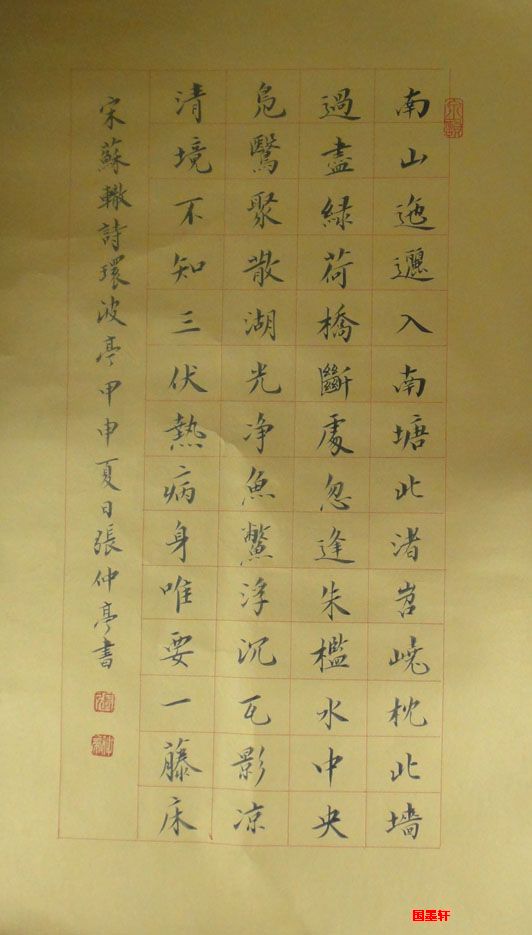 南山迤邐入南塘北渚岧嶢枕北墻
過盡緑荷橋斷處忽逢朱檻水中央
鳧鷖聚散湖光净魚鱉浮沉瓦影凉
清境不知三伏熱病身唯要一藤床
宋蘇轍詩環波亭甲申夏日張仲亭書
国墨轩